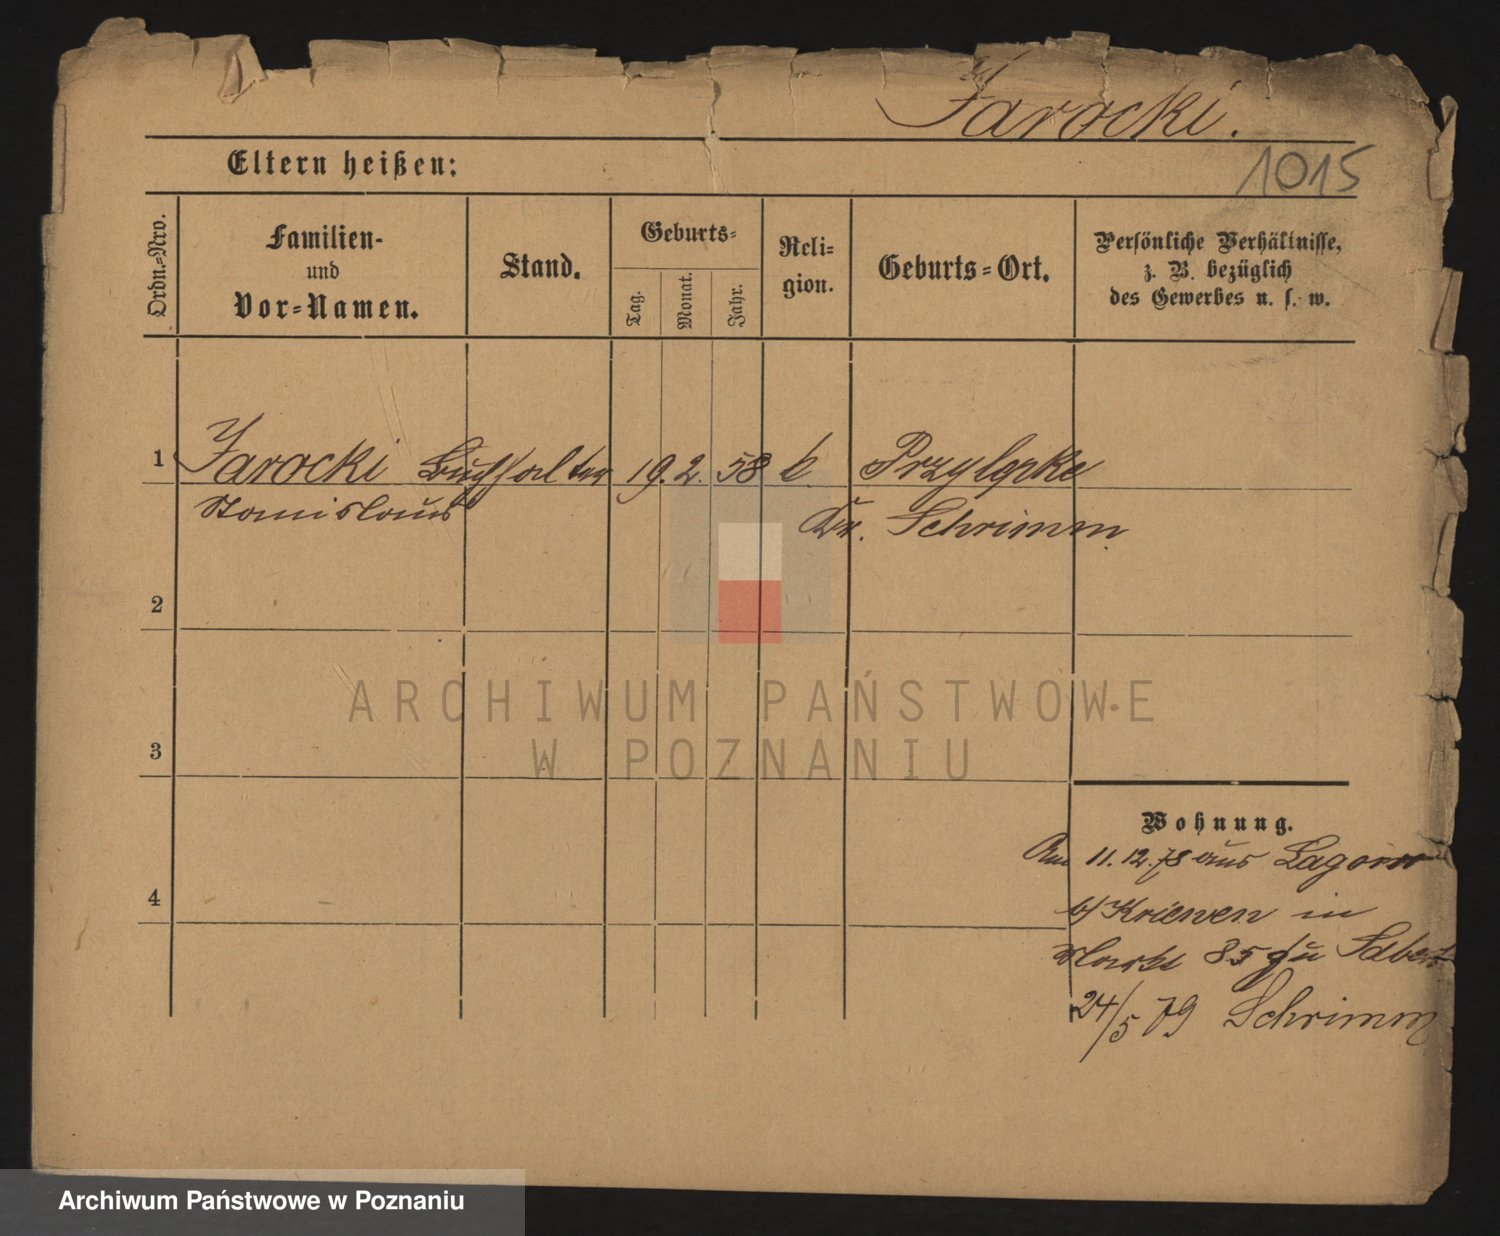 Jarocki.
1015
Eltern heißen:
Ordn.-Nro.
Familien-
und
Vor-Namen.
Stand.
Geburts-
Tag.
Monat.
Jahr.
Reli-
gion.
Geburts-Ort.
Persönliche Verhältnisse,
z. B. bezüglich
des Gewerbes u. s. w.
1 Jarocki Buchhalter 19. 2. 58 k. Przylepke
Stanislaus Kr. Schrimm
2
3
4
Wohnung.
11. 12. 78 aus Lagow
b/ Kriewen in
Markt 85 zu
24/5 79 Schrimm
ARCHIWUM PAŃSTWOWE
W POZNANIU
Archiwum Państwowe w Poznaniu